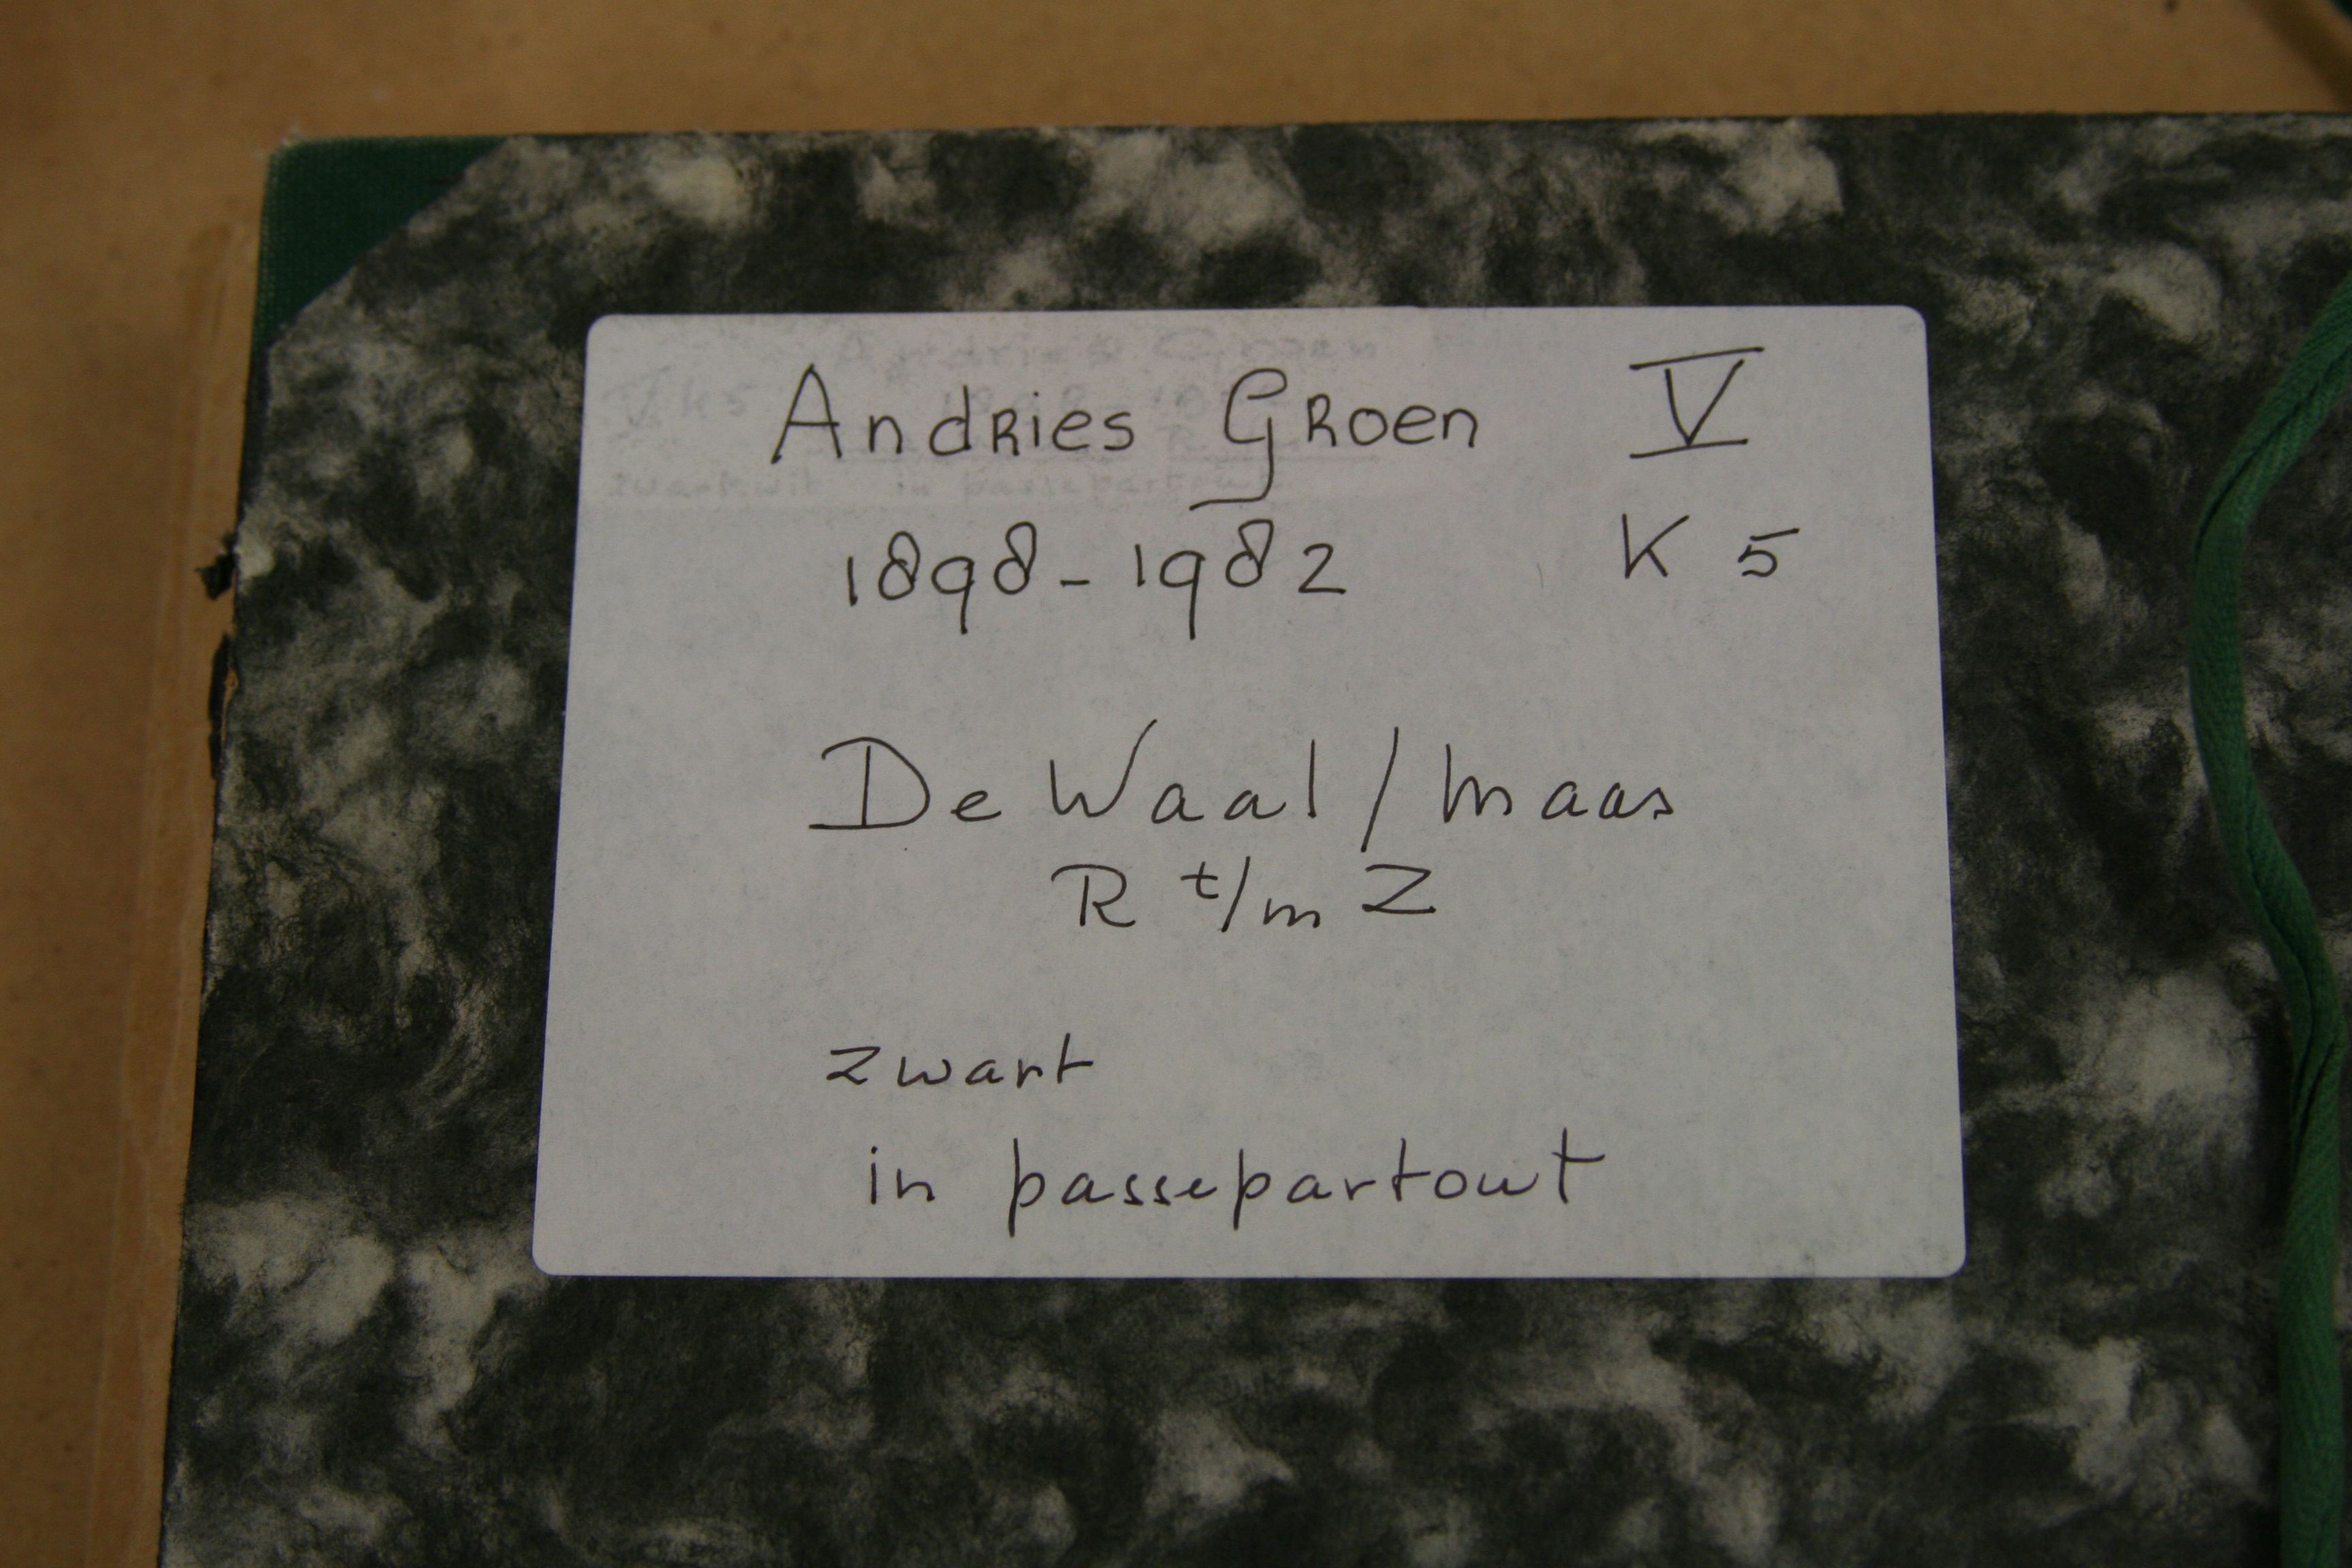 Andries Groen V
1898-1982 K 5
De Waal/Maas
R t/m Z
zwart
in passepartout